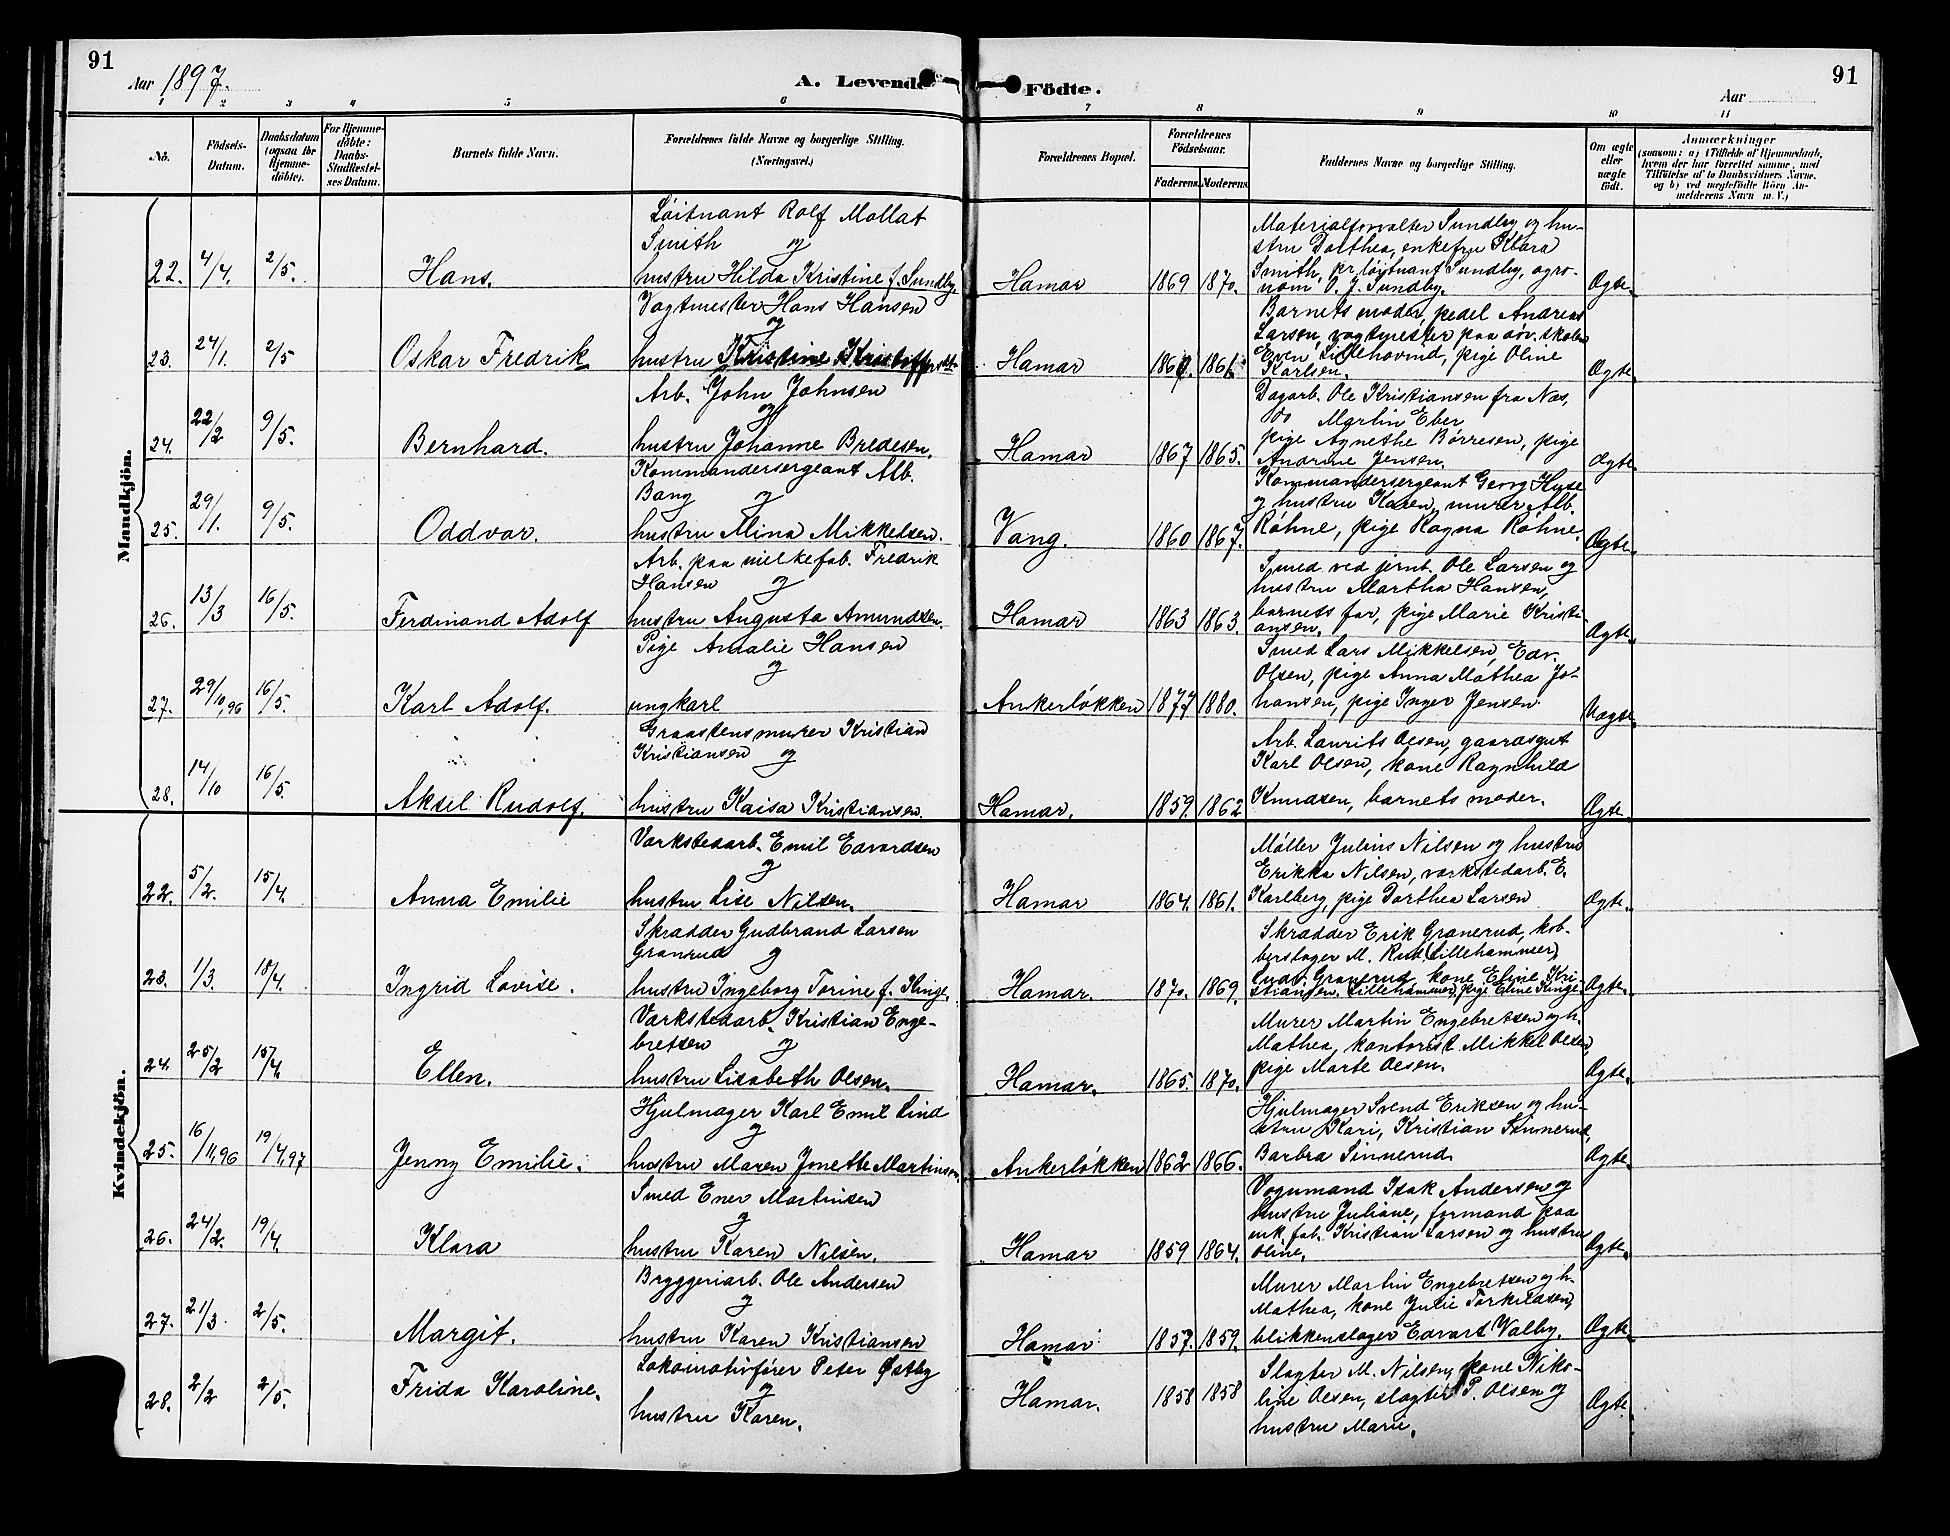 91
Aar 1897.
A. Levende
Födte.
91
Aar
1 2 3 4 5 6 7 8 9 10 11
No.
Födsels-Datum.
Daabsdatum (ogsaa for Hjemme-döbte).
For Hjemme-döbte: Daabs-Stadfæstel-ses Datum.
Barnets fulde Navn.
Forældrenes fulde Navne og borgerlige Stilling. (Næringsvei.)
Forældrenes Bopæl.
Forældrenes Födselsaar.
Faderens. Moderens.
Faddernes Navne og borgerlige Stilling.
Om ægte eller uægte født.
Anmærkninger
(saasom: a) i Tilfælde af Hjemmedaab, hvem der har forrettet samme, med Tilføielse af to Daabsvidners Navne, og b) ved uægtefødte Börn An-melderens Navn m. V.)
Mandkjön.
22. 4/4. 2/5. Hans.
Löitnant Rolf Mollat
Smith og
hustru Hilda Kristine f. Sundby.
Hamar 1869 1870.
Materialforvalter Sundby og hu-
stru Dorthea, enkefru Klara
Smith, pr. løjtnant Sundby, agro-
nom O. J. Sundby.
Ægte.
23. 24/1. 2/5 Oskar Fredrik
Vagtmester Hans Hansen
og
hustru Kristine
Hamar
Barnets moder, pedel Andreas
Larsen, vagtmester paa
Even Lillehovind, pige Oline
Karlsen.
Ægte.
24. 22/2 9/5. Bernhard.
Arb. John Johnsen
og
hustru Johanne Bredesen.
Hamar 1867 1865.
Dagarb. Ole Kristiansen fra Næs,
do Martin Eber
pige Agnethe Börresen, pige
Andrine Jensen.
Ægte.
25. 29/1. 9/5. Oddvar.
Kommandersergeant Alb.
Bang og
hustru Mina Mikkelsen.
Vang. 1860 1867.
Kommandersergeant Georg Huse
og hustru Karen, murer Alb.
Röhne, pige Ragna Röhne.
Ægte.
26. 13/3 16/5. Ferdinand Adolf
Arb. paa milkefab. Fredrik
Hansen og
hustru Augusta Amundsen.
Hamar 1863 1863.
Smed ved jernb. Ole Larsen og
hustru Martha Hansen,
barnets far, pige Marie Kristi-
ansen.
Ægte.
27. 29/10,96 16/5. Karl Adolf.
Pige Amalie Hansen
og
ungkarl
Ankerløkken 1877 1880.
Smed Lars Mikkelsen, Edv.
Olsen, pige Anna Mathea Jo-
hansen, pige Inger Jensen.
Uægte.
28. 14/10 16/5. Aksel Rudolf.
Graastensmurer Kristian
Kristiansen og
hustru Kaisa Kristiansen.
Hamar. 1859. 1862
Arb. Laurits Olsen, gaardsgut
Karl Olsen, kone Ragnhild
Knudsen, barnets moder.
Ægte.
Kvindekjön.
22. 5/2. 15/4. Anna Emilie
Værkstedarb. Emil Edvardsen
og
hustru Lise Nilsen.
Hamar 1864. 1861.
Møller Julius Nilsen og hustru
Erikka Nilsen, værkstedarb. E.
Karlberg, pige Dorthea Larsen
Ægte.
23. 1/3. 18/4. Ingrid Lovise.
Skrædder Gudbrand Larsen
Granrud og
hustru Ingeborg Torine f. Kinge.
Hamar. 1870. 1869.
Skrædder Erik Granerud, kob-
berslager M. Rub (Lillehammer)
Ludv. Granerud, kone Eline Kri-
stiansen, Lillehammer, pige Eline Kinge.
Ægte.
24. 25/2 15/4. Ellen.
Værkstedarb. Kristian Enge-
bretsen og
hustru Lisabeth Olsen.
Hamar. 1865. 1870.
Murer Martin Engebretsen og h.
Mathea, kontorist Mikkel Olsen,
pige Marte Olsen.
Ægte.
25. 16/11,96 19/4,97 Jenny Emilie.
Hjulmager Karl Emil Lind
og
hustru Maren Jonette Martinsen.
Ankerløkken 1862 1866.
Hjulmager Svend Eriksen og hu-
stru Kari, Kristian Sinnerud,
Barbra Sinnerud.
Ægte.
26. 24/2. 19/4. Klara
Smed Ener Martinsen
og
hustru Karen Nilsen.
Hamar 1859 1864.
Vognmand Isak Andersen og
hustru Juliane, formand paa
mk. fab. Kristian Larsen og hustru
Oline.
Ægte.
27. 21/3. 2/5. Margit.
Bryggeriarb. Ole Andersen
og
hustru Karen Kristiansen
Hamar 1857. 1859.
Murer Martin Engebretsen og h.
Mathea, kone Julie Torkildsen,
blikkenslager Edvart Valby.
Ægte.
28. 2/2 2/5. Frida Karoline.
Lokomotivfører Peter Østby
og
hustru Karen.
Hamar. 1858 1858
Slagter M. Nilsen, kone Niko-
line Olsen, slagter P. Olsen og
hustru Marie.
Ægte.